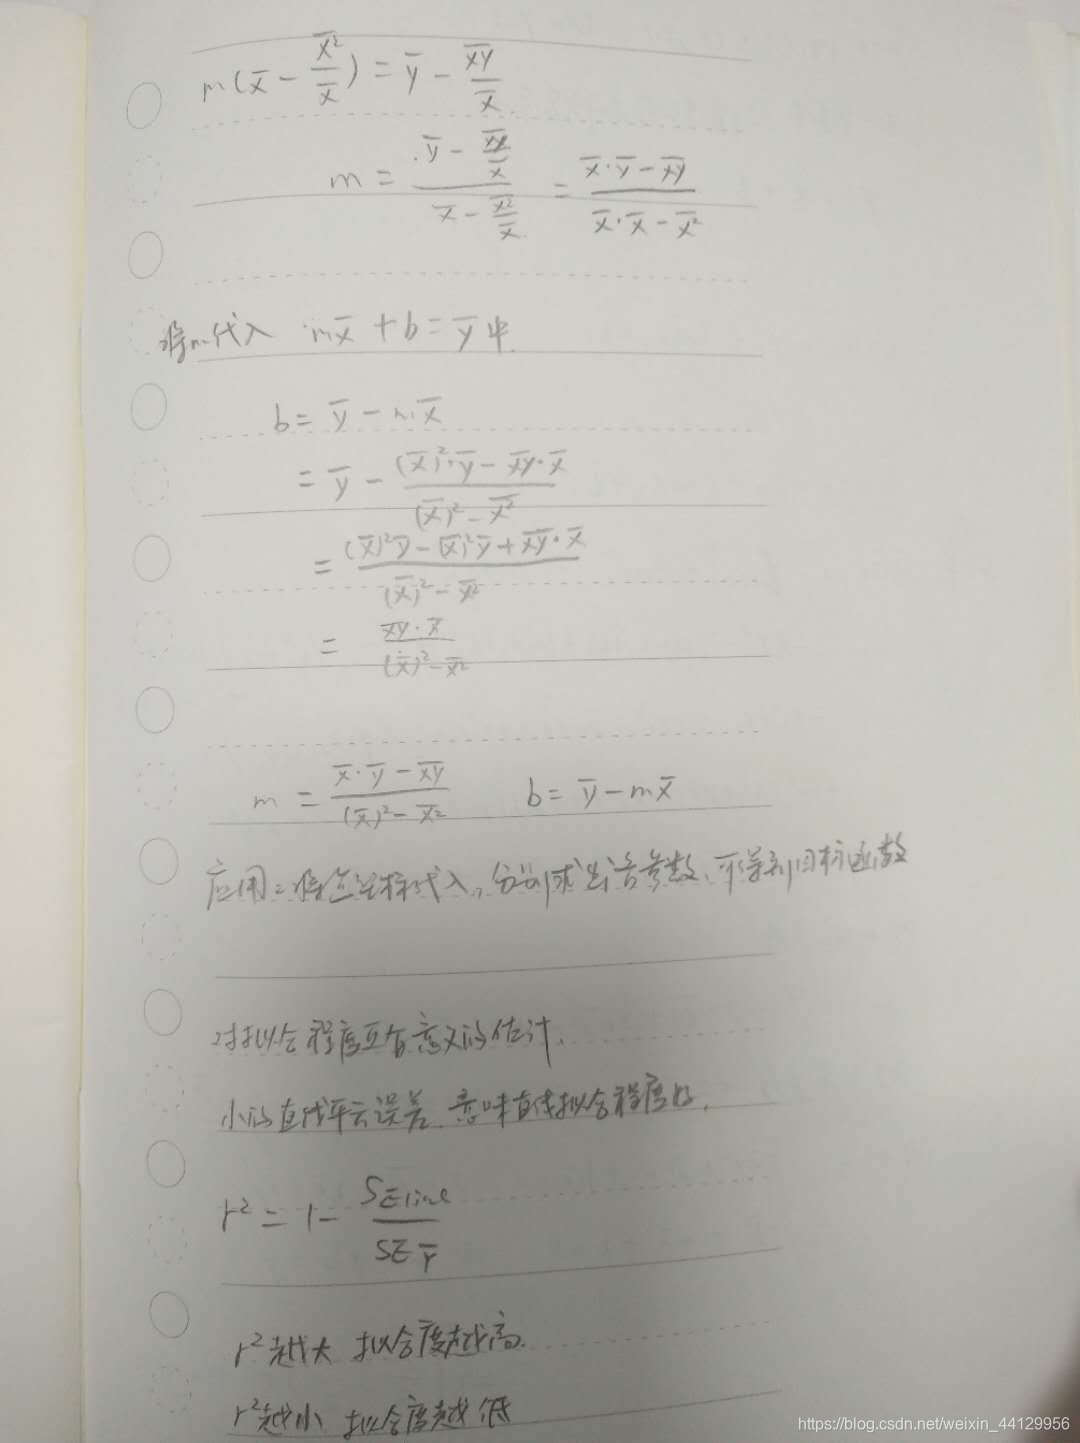 m(x̄ − x̄²/x̄) = ȳ − x̄ȳ/x̄
m = (ȳ − x̄ȳ/x̄)/(x̄ − x̄²/x̄) = (x̄·ȳ − x̄ȳ)/(x̄·x̄ − x̄²)
将m代入 mx̄ + b = ȳ中
b = ȳ − mx̄
= ȳ − ((x̄)²·ȳ − x̄ȳ·x̄)/((x̄)² − x̄²)
= ((x̄)²ȳ − (x̄)²ȳ + x̄ȳ·x̄)/((x̄)² − x̄²)
= (x̄ȳ·x̄)/((x̄)² − x̄²)
m = (x̄·ȳ − x̄ȳ)/((x̄)² − x̄²) b = ȳ − mx̄
应用:将点坐标代入,分别求出各参数,可得到目标函数
对拟合程度更有意义的估计.
小的直线平方误差.意味直线拟合程度好.
r² = 1 − SEline/SEȳ
r²越大 拟合度越高.
r²越小 拟合度越低
https://blog.csdn.net/weixin_44129956